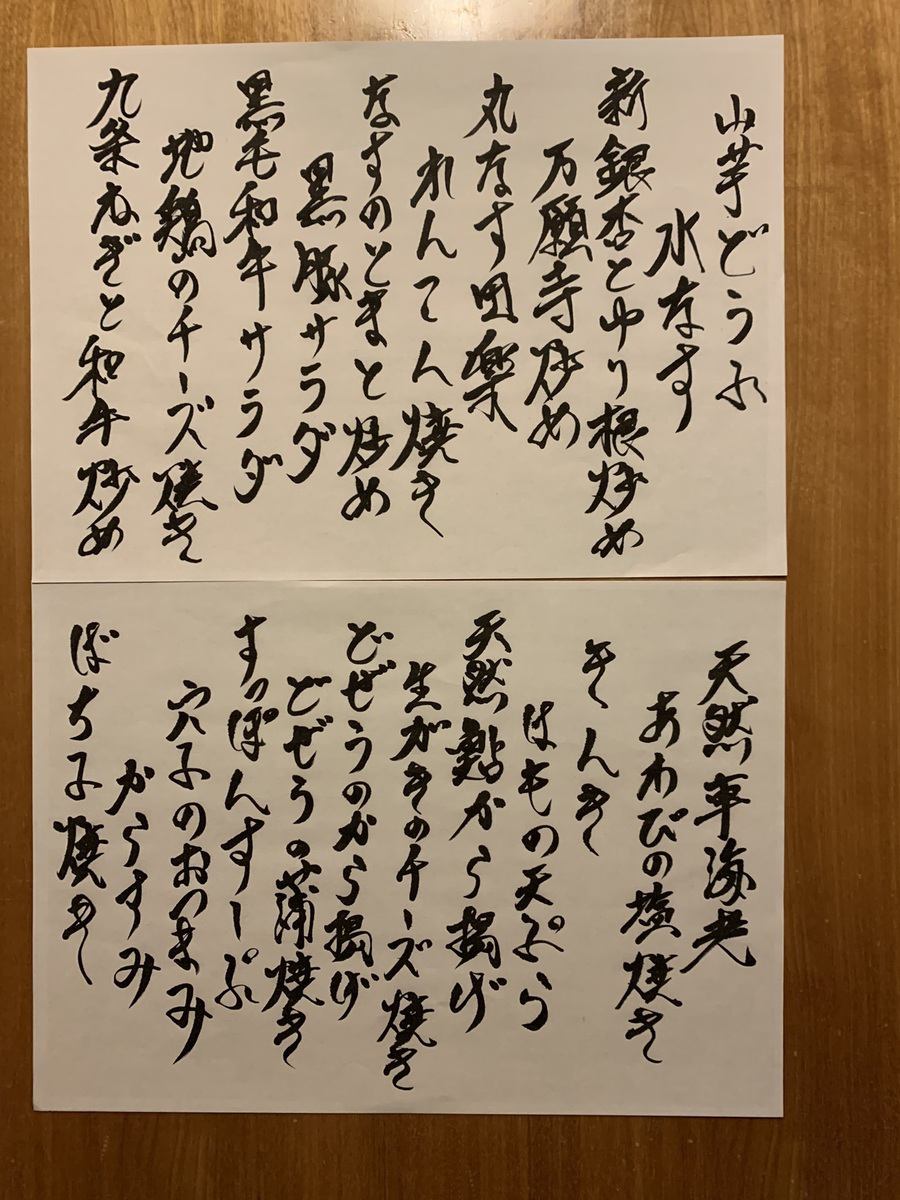 山芋どうふ
水なす
新銀杏とゆり根炒め
万願寺炒め
丸なす田楽
れんこん焼き
なすのとまと炒め
黒豚サラダ
黒毛和牛サラダ
地鶏のチーズ焼き
九条ねぎと和牛炒め
天然車海老
あわびの塩焼き
きんき
はもの天ぷら
天然鮎から揚げ
生がきのチーズ焼き
どぜうのから揚げ
どぜうの蒲焼き
すっぽんすーぷ
穴子のおつまみ
からすみ
ばちこ焼き